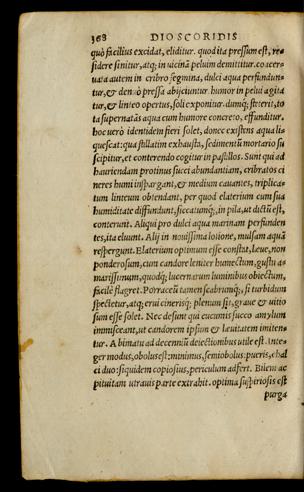 368 DIOSCORIDIS
quò facilius excidat, eliditur. quod ita pressum est, re-
sidere sinitur, atq; in vicinā peluim demittitur. coacer-
uata autem in cribro segmina, dulci aqua perfundun-
tur, & denuò pressa abijciuntur humor in pelui agita
tur, & linteo opertus, soli exponitur. dumq; steterit, to
ta supernatās aqua cum humore concreto, effunditur.
hoc uerò identidem fieri solet, donec existens aqua li-
quescat: qua stillatim exhausta, sedimentū mortario su
scipitur, et conterendo cogitur in pastillos. Sunt qui ad
hauriendam protinus succi abundantiam, cribratos ci
neres humi inspargant, & medium cauantes, triplica-
tum linteum obtendant, per quod elaterium cum sua
humiditate diffundunt, siccatumq;, in pila, ut dictū est,
conterunt. Aliqui pro dulci aqua marinam perfunden
tes, ita eluunt. Alij in nouissima lotione, mulsam aquā
respergunt. Elaterium optimum esse constat, leue, non
ponderosum, cum candore leniter humectum, gustu a-
marissimum, quodq; lucernarum luminibus obiectum,
facilè flagret. Porraceū tamen scabrumq;, si turbidum
spectetur, atq; erui cinerisq; plenum sit, graue & uitio
sum esse solet. Nec desunt qui cucumis succo amylum
immisceant, ut candorem ipsum & leuitatem imiten-
tur. A bimatu ad decenniū deiectionibus utile est. Inte-
ger modus, obolus est: minimus, semiobolus: pueris, chal
ci duo: siquidem copiosius, periculum adfert. Bilem ac
pituitam utrauis parte extrahit. optima suspiriosis est
purga